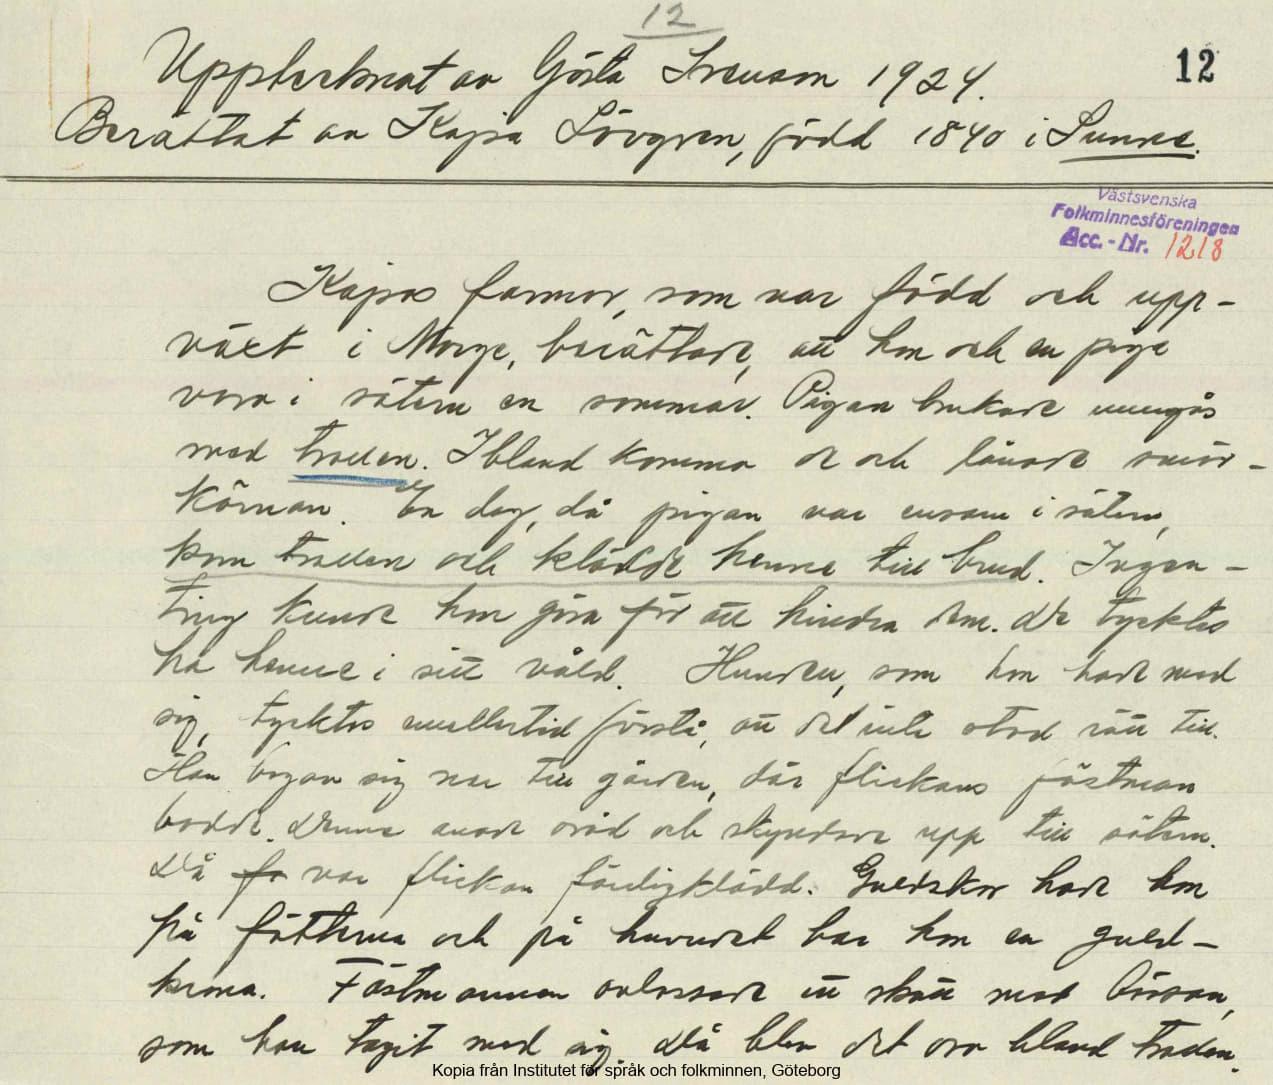 12
12
Upptecknat av Gösta Ivenson 1924.
Berättat av Kajsa Lövgren, född 1840 i Sunne.
Västsvenska
Folkminnesföreningen
Acc. - Nr. 1218
Kajsas farmor, som var född och upp-
växt i Norge, berättade, att hon och en piga
voro i sätern en sommar. Pigan brukade umgås
med trollen. Ibland komma de och lånade smör-
kärnan. En dag, då pigan var ensam i sätern,
kom trollen och klädde henne till brud. Ingen-
ting kunde hon göra för att hindra dem. De tycktes
ha henne i sitt våld. Hunden, som hon hade med
sig, tycktes emellertid förstå, att det inte stod rätt till.
Han begav sig ner till gården, där flickans fästman
bodde. Denne anade oråd och skyndade upp till sätern.
Då fo var flickan färdigklädd. Guldskor hade hon
på fötterna och på huvudet bar hon en guld-
krona. Fästmannen avlossade ett skott med bössan,
som han tagit med sig. Då blev det oro bland trollen.
Kopia från Institutet för språk och folkminnen, Göteborg